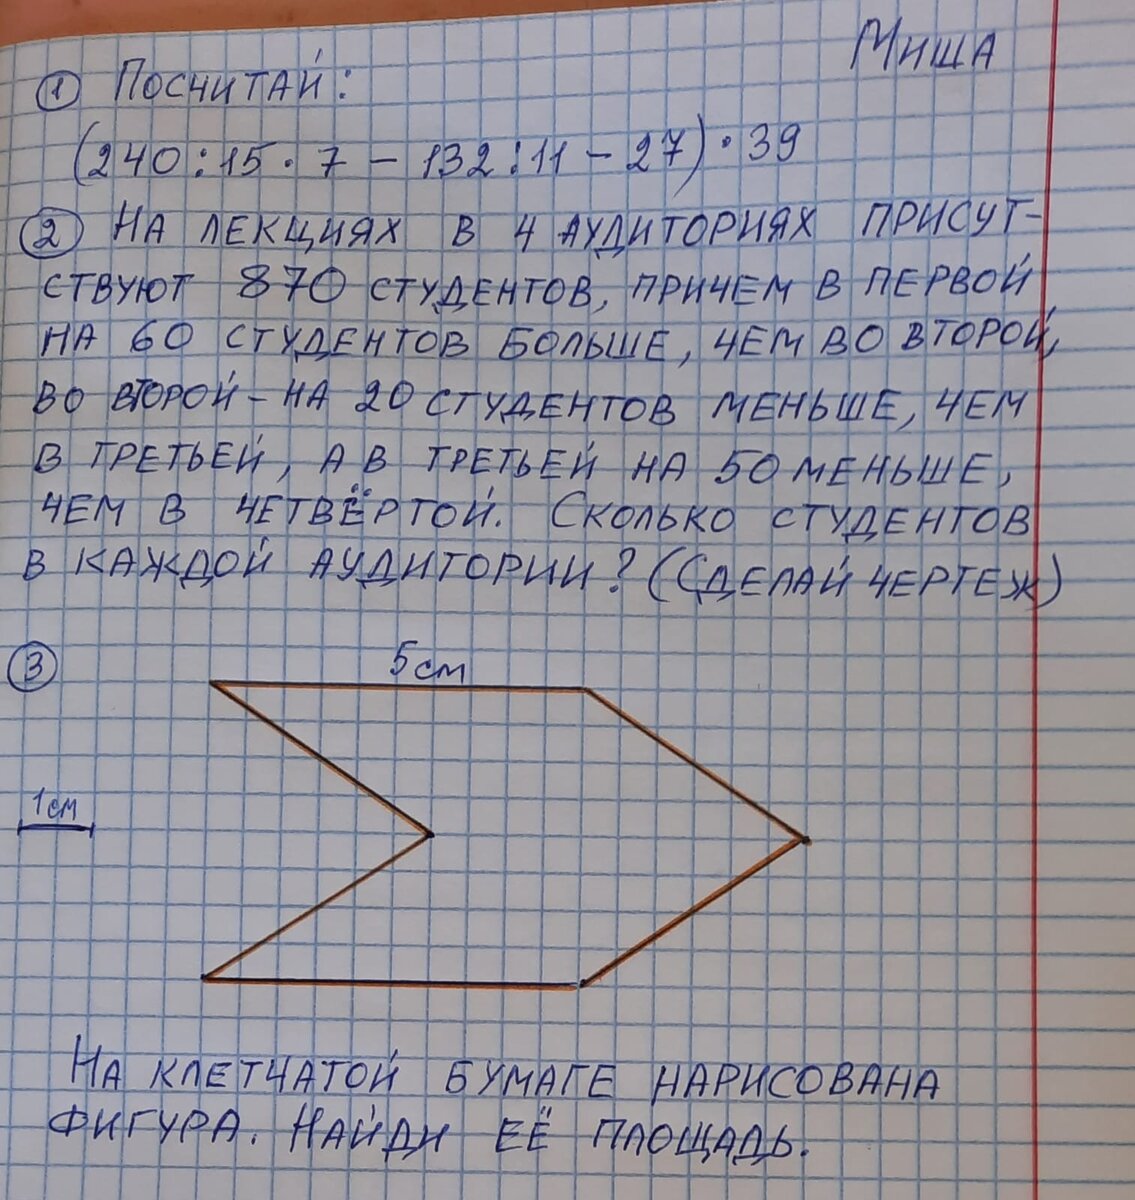 Миша
① Посчитай:
(240:15·7-132:11-27)·39
② На лекциях в 4 аудиториях присут-
ствуют 870 студентов, причем в первой
на 60 студентов больше, чем во второй,
во второй - на 20 студентов меньше, чем
в третьей, а в третьей на 50 меньше,
чем в четвёртой. Сколько студентов
в каждой аудитории? (Сделай чертеж)
③
5см
1см
На клетчатой бумаге нарисована
фигура. Найди её площадь.